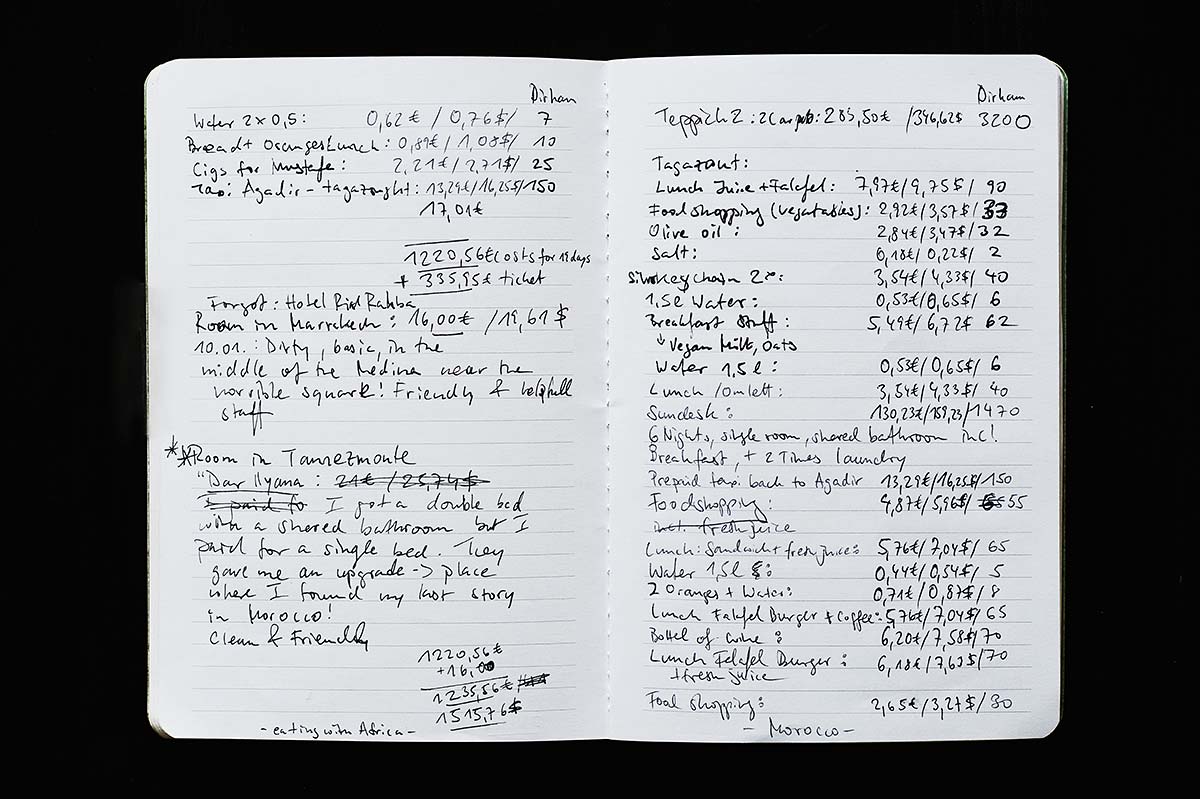 Dirham
Water 2 x 0,5: 0,62€ / 0,76$/ 7
Bread + Oranges Lunch: 0,89€/ 1,08$/ 10
Cigs for Mustafe: 2,21€/ 2,71$/ 25
Taxi Agadir - tagazought: 13,29€/16,25$/150
17,01€
1220,56€ costs for 19 days
+ 335,95€ ticket
Forgot: Hotel Riad Rahba
Room in Marrakech: 16,00€ /19,61$
10.01.: Dirty, basic, in the
middle of the Medina near the
horrible square! Friendly & helpfull
staff
**Room in Tamrezmoute
"Dar Ilyana: 21€ / 25,74$
I paid fo I got a double bed
with a shared bathroom but I
paid for a single bed. They
gave me an upgrade -> place
where I found my last story
in Morocco!
Clean & Friendly
1220,56€
+16,00
1235,56€
1515,76$
- eating with Africa -
Dirham
Teppich 2: 285,50€ /346,62$ 3200
Tagazout:
Lunch Juice + Falafel: 7,97€/9,75$/ 90
Food shopping (vegatables): 2,92€/3,57$/ 33
Olive oil: 2,84€/3,47$/ 32
Salt: 0,18€/0,22$/ 2
Keychain 2x: 3,54€/4,33$/ 40
1,5l Water: 0,53€/0,65$/ 6
Breakfast Stuff: 5,49€/6,72$ 62
↳ Vegan Milk, Oats
Water 1,5l: 0,53€/0,65$/ 6
Lunch /Omlett: 3,54€/4,33$/ 40
Sundesk: 130,23€/159,23/1470
6 Nights, single room, shared bathroom incl.
Breakfast, + 2 Times laundry
Prepaid taxi back to Agadir 13,29€/16,25$/150
Foodshopping: 4,87€/5,96$/ 55
incl. fresh juice
Lunch: Sandwich + fresh juice: 5,76€/7,04$/ 65
Water 1,5l: 0,44€/0,54$/ 5
2 Oranges + Water: 0,71€/0,87$/ 8
Lunch Falafel Burger + Coffee: 5,76€/7,04$/ 65
Bottel of wine: 6,20€/7,58$/70
Lunch Felafel Burger: 6,18€/7,63$/70
+ fresh juice
Food shopping: 2,65€/3,27$/ 30
- Morocco -